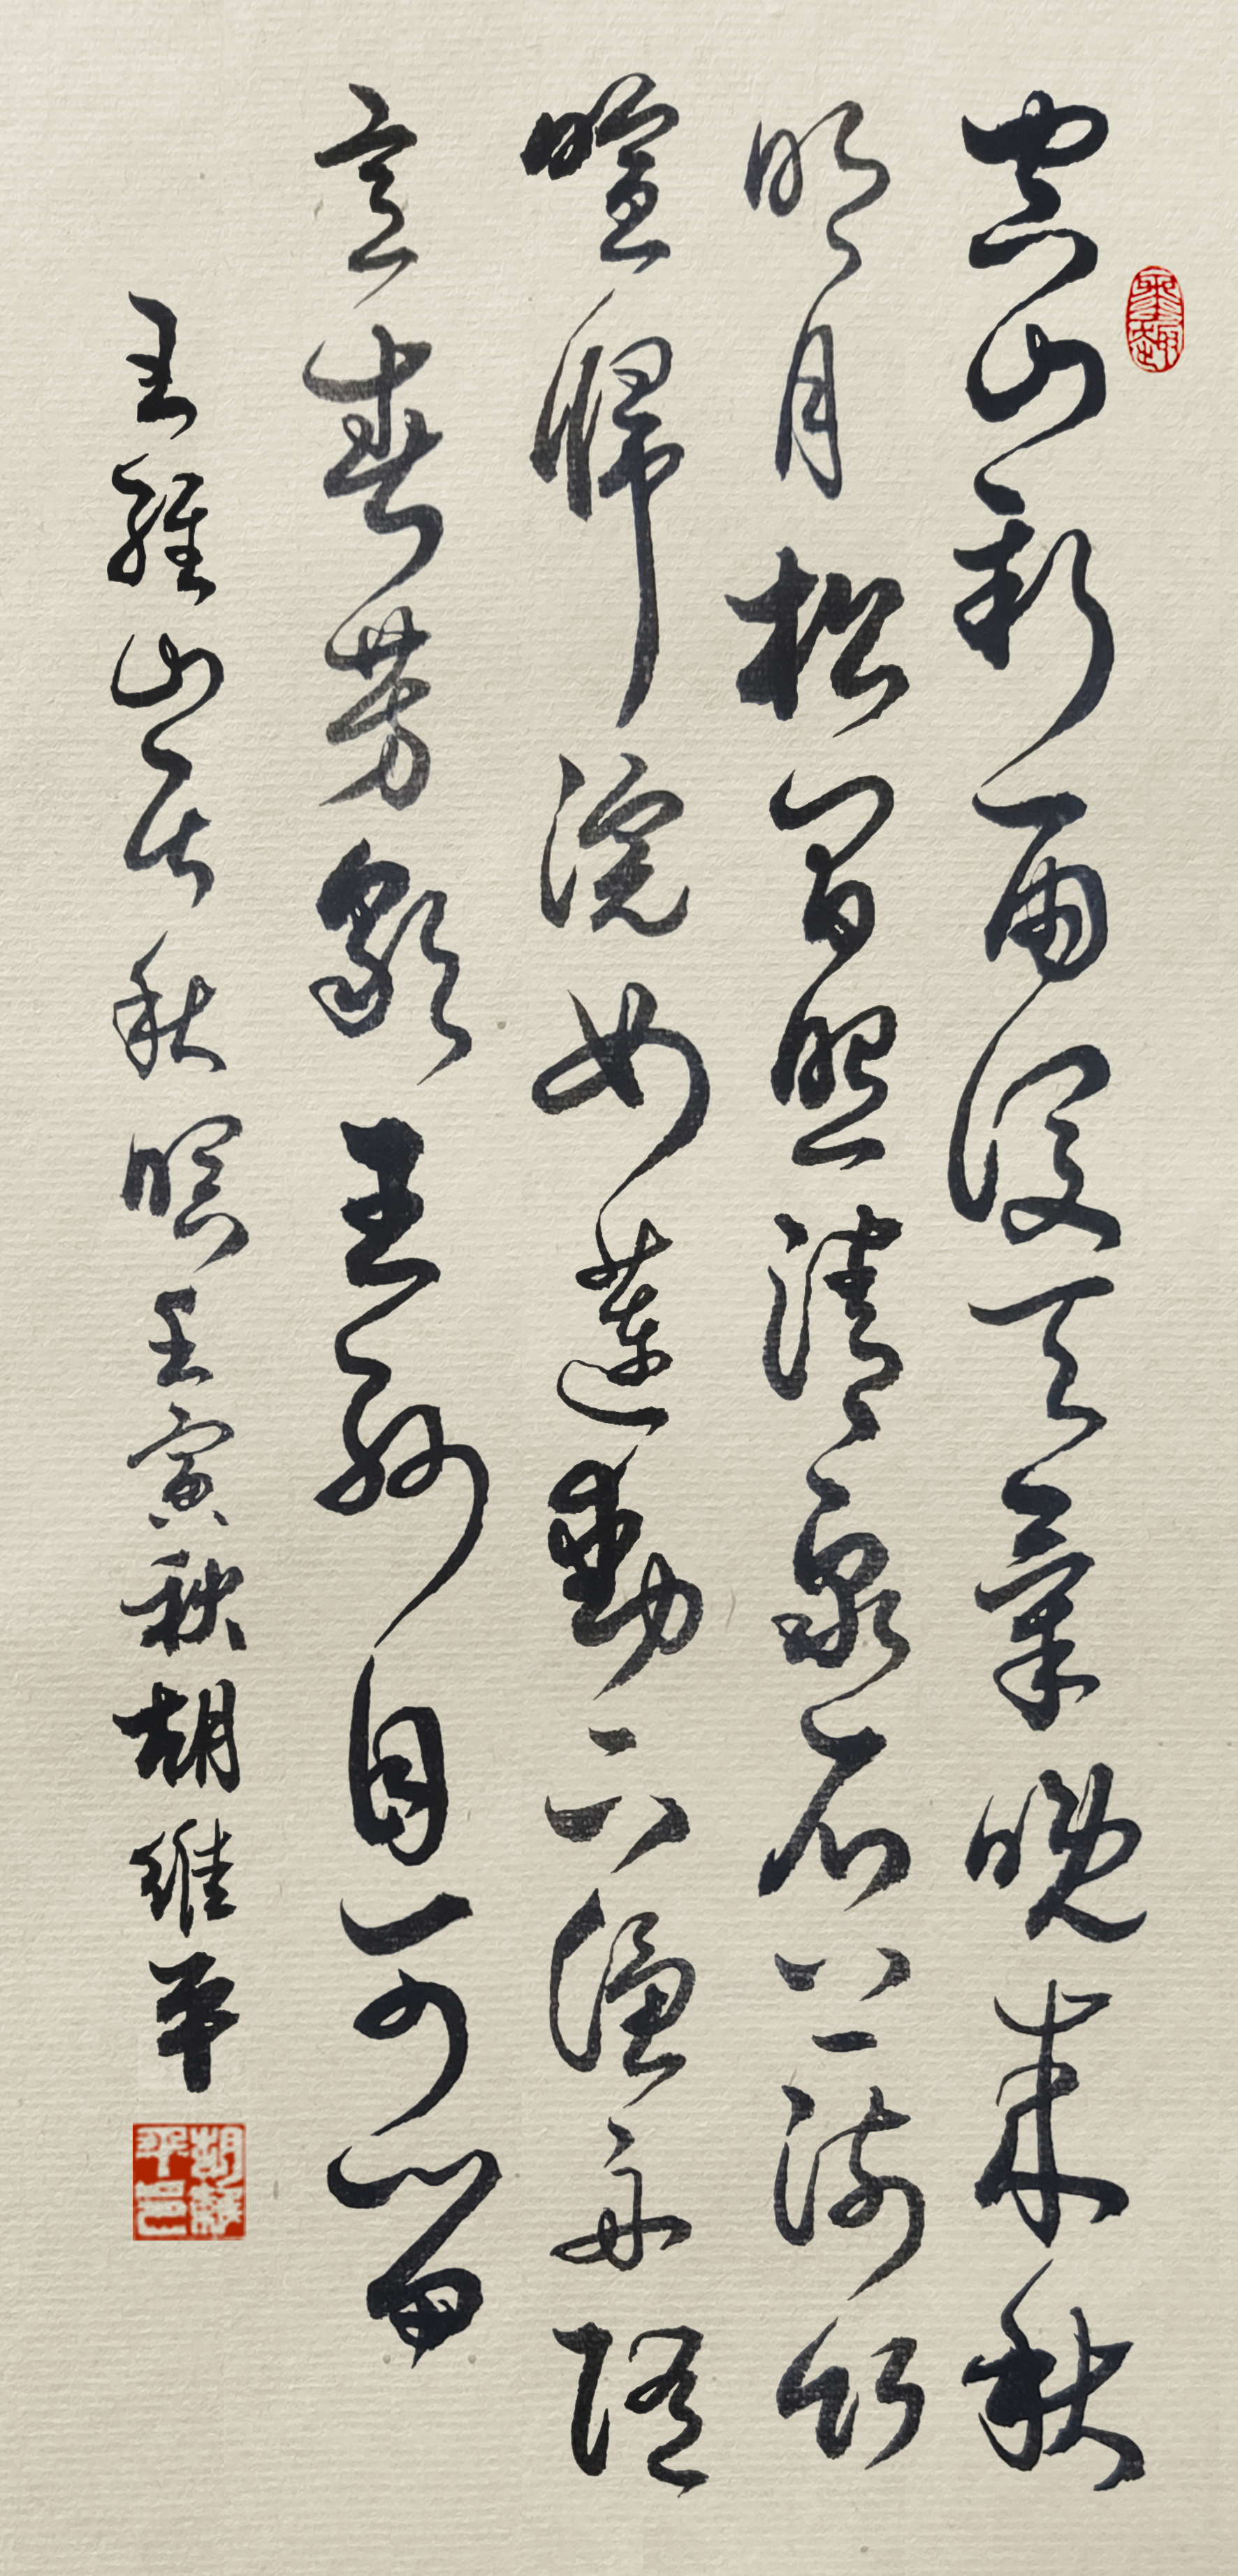 空山新雨後天氣晚来秋
明月松間照清泉石上流竹
喧歸浣女蓮動下漁舟随
意春芳歇王孫自可留
王維山居秋暝壬寅秋胡維平
胡維平印